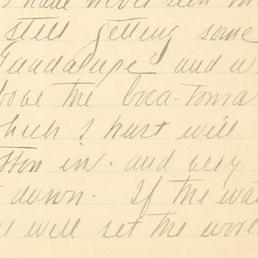 have never seen
still getting some
Guadalupe and
the boca-toma
which I trust will
in. and very
down. If the
will set the